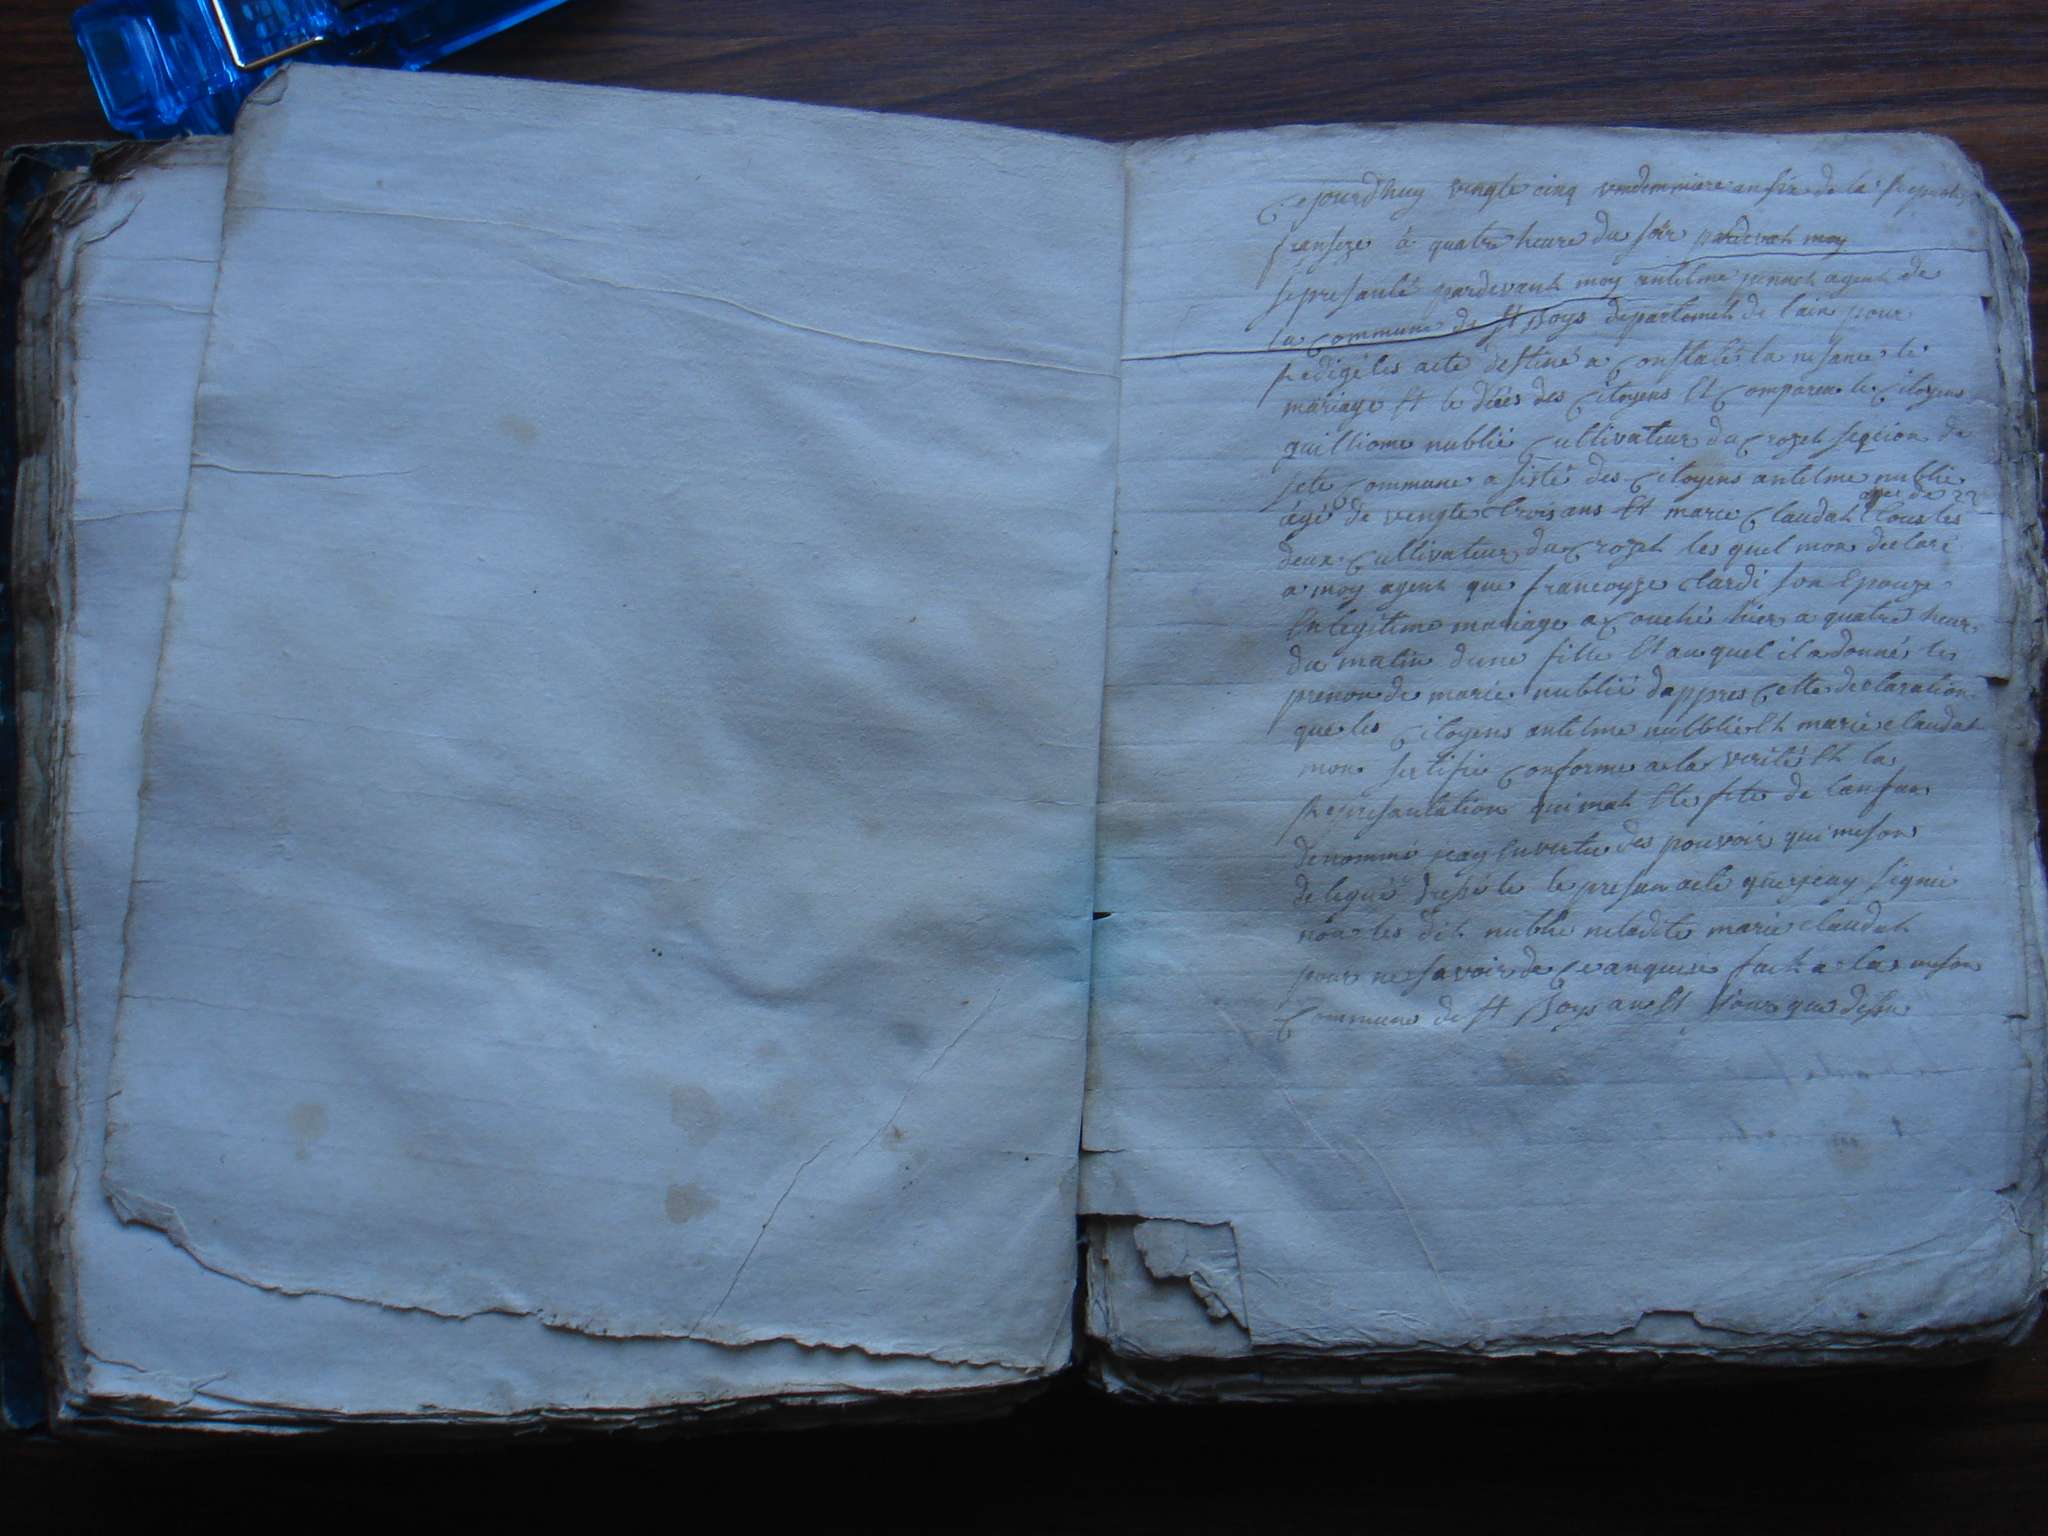 Cejourdhuy vingte cinq vendemmiere an six de la Repub
franseze à quatre heure du soir pardevah moy
se presanté pardevant moy antelme agent de
la Commune de St Boys departemeh de lain pour
Redigé les acte destiné a Constalé la nesance le
mariage Et le décés des Citoyens Et Comparu le Citoyens
guilliome nublié Cultivateur du Crozet secion de
sete Commune a sisté des Citoyens antelme nublie
âgé de vengte trois ans Et marie Claudah agee de 22 tous les
deux Cultivateur du Crozet les quel mon declaré
a moy agent que francoyze clardi son Epouze
En legitime mariage a Couché hier a quatre heur
du matin dune fille Et au quel il a donné les
prenon de marie nublié dappres Cette declaration
que les Citoyens antelme nubblié Et marie claudah
mon sertifié Conforme a la verité Et la
Represantation qui mah Ete fete de lanfan
denommé jeay En vertu des pouvoir qui me son
delegué le presan acte que jeay signé
non les dit nublie ne ladite marie claudah
pour ne savoir de Ce anquiri fait a la meson
Commune de St Boys an Et jour que dessu